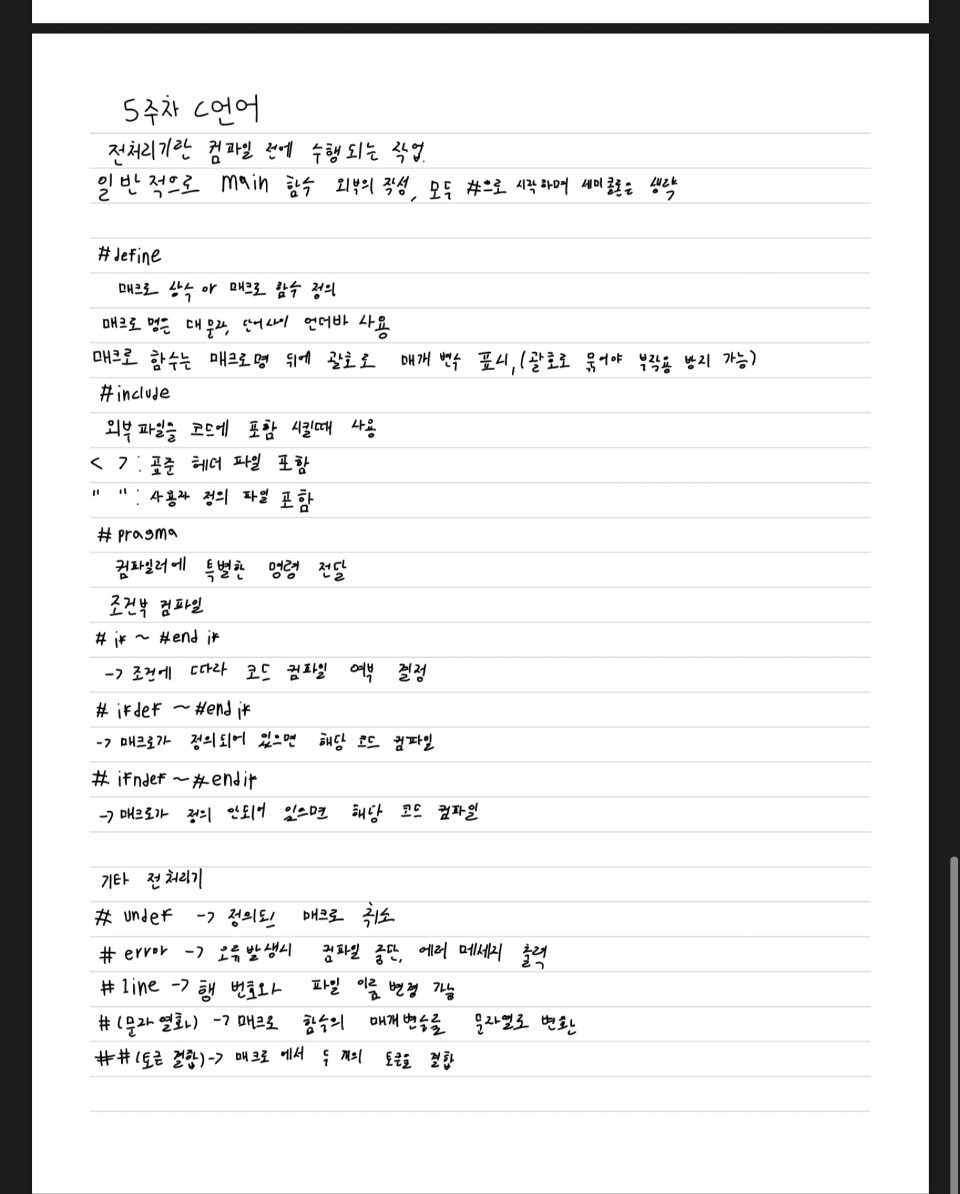 5주차 C언어
전처리기란 컴파일 전에 수행되는 작업.
일반적으로 main 함수 외부의 작성, 모두 #으로 시작하며 세미콜론은 생략
#define
매크로 상수 or 매크로 함수 정의
매크로 명은 대문자, 단어사이 언더바 사용
매크로 함수는 매크로명 뒤에 괄호로 매개 변수 표시, (괄호로 묶어야 부작용 방지 가능)
#include
외부 파일을 코드에 포함 시킬때 사용
< > : 표준 헤더 파일 포함
" " : 사용자 정의 파일 포함
#pragma
컴파일러에 특별한 명령 전달
조건부 컴파일
#if ~ #end if
-> 조건에 따라 코드 컴파일 여부 결정
#ifdef ~ #end if
-> 매크로가 정의되어 있으면 해당 코드 컴파일
#ifndef ~ #endif
-> 매크로가 정의 안되어 있으면 해당 코드 컴파일
기타 전처리기
#undef -> 정의된 매크로 취소
#error -> 오류발생시 컴파일 중단, 에러 메세지 출력
#line -> 행 번호와 파일 이름 변경 가능
#(문자열화) -> 매크로 함수의 매개변수를 문자열로 변환
##(토큰 결합) -> 매크로에서 두 개의 토큰을 결합